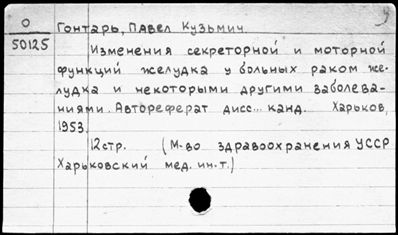 О
50125
Гонтарь, Павел Кузьмич.
Изменения секреторной и моторной
функций желудка у больных раком же-
лудка и некоторыми другими заболева-
ниями. Автореферат дисс... канд. Харьков,
1953.
12стр. (М-во здравоохранения УССР
Харьковский мед. ин-т.)